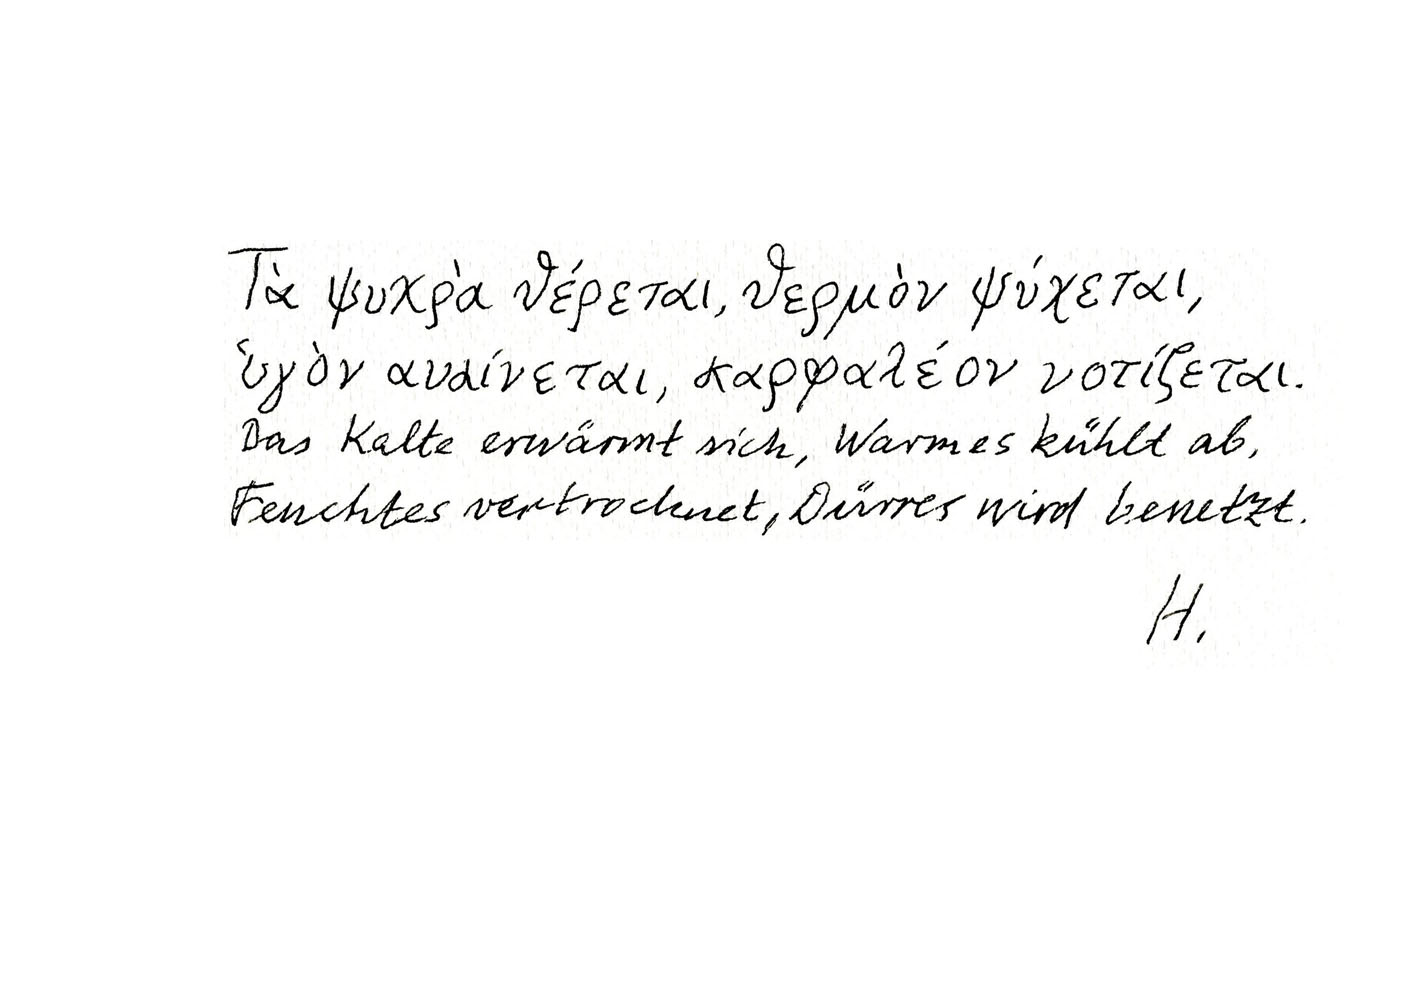 Τὰ ψυχρὰ θέρεται, θερμὸν ψύχεται,
ὑγὸν αυαίνεται, καρφαλέον νοτίζεται.
Das Kalte erwärmt sich, Warmes kühlt ab,
Feuchtes vertrocknet, Dürres wird benetzt.
H.